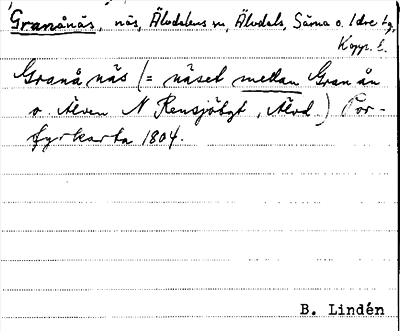 Granånäs, näs, Älvdalens sn, Älvdals, Särna o. Idre tg,
Kopp. l.
Granå näs (= näset mellan Gran ån
o. Älven N Rensjöbgt, Älvd.) Por-
fyrkarta 1804.
B. Lindén